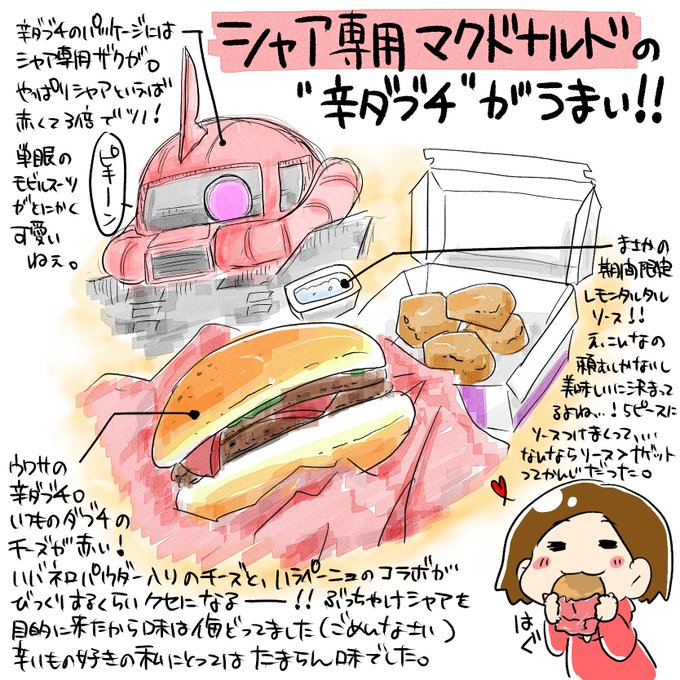 シャア専用マクドナルドの
"辛ダブチ"がうまい!!
辛ダブチのパッケージには
シャア専用ザクが。
やっぱりシャアといえば
赤くて3倍でッツ!
単眼の
モビルスーツ
がとにかく
可愛い
ねぇ。
ピキーン
まさかの
期間限定
レモンタルタル
ソース!!
え、こんなの
頼むしかないし
美味しいに決まって
るよね、、!5ピースに
ソースつけまくって、、、、
なんならソース>ナゲット
ってかんじだった。
ウワサの
辛ダブチ。
いつものダブチの
チーズが赤い!
ハバネロパウダー入りのチーズと、ハラペーニョのコラボが
びっくりするくらいクセになるー!!ぶっちゃけシャアを
目的に来たから味は侮どってました(ごめんなさい)
辛いもの好きの私にとってはたまらん味でした。
はぐ